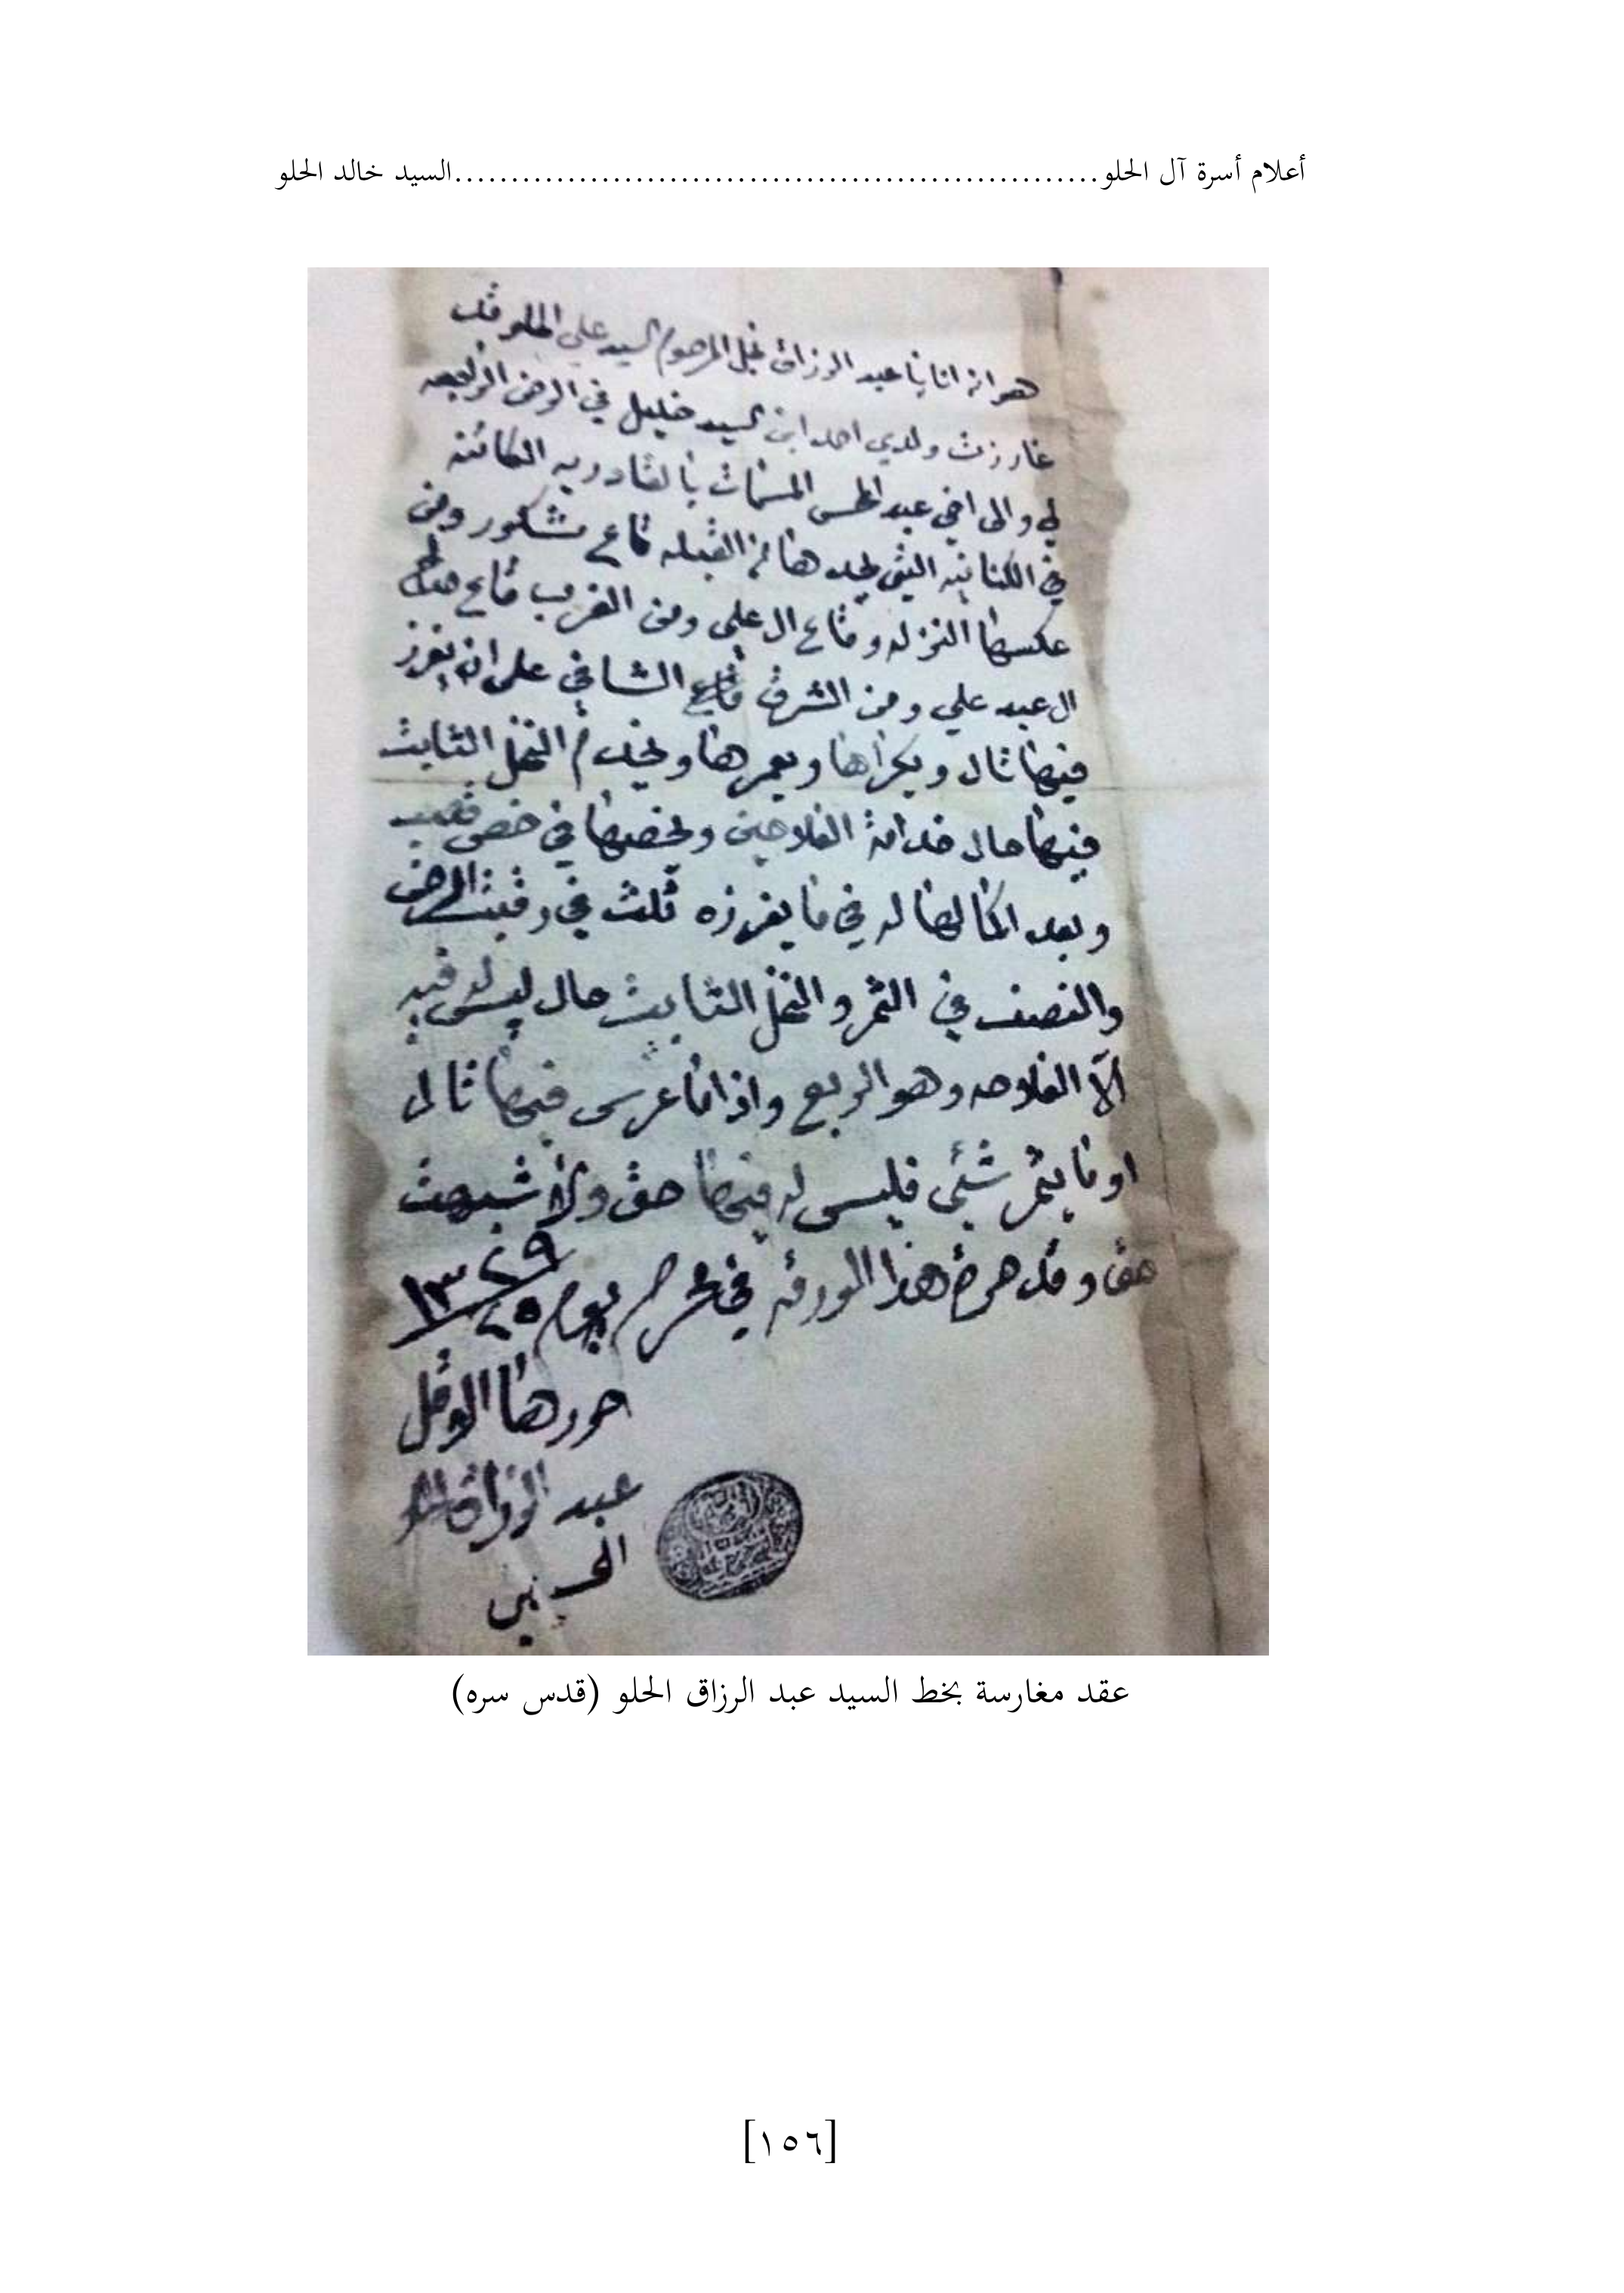 أعلام أسرة آل الحلو.........................................................السيد خالد الحلو
هو انه انا يا عبد الرزاق نجل المرحوم السيد علي الحلو قد
غارزت ولدي احمد ابن السيد خليل في الارض الراجعه
لي والى اخي عبد الحسن المسمات بالقادريه الكائنه
في الكتانيه التي يحدها من القبله قاع مشكور ومن
عكسها النزله وقاع ال علي ومن الغرب قاع
ال عبد علي ومن الشرق قاع الشافي على ان يغرز
فيها تال ويكراها ويعمرها ويخدم النخل الثابت
فيها حال خدامة الفلاحين ويخصها في خص قصب
وبعد اكمالها له في ما يغرزه ثلث في رقبت الارض
والنصف في الثمر والنخل الثابت حال ليس له فيه
الّا الفلاحه وهو الربع واذا ما غرس فيها تال
او ما يثمر شئي فليس له فيها حق ولا شبهت
حق وقد حرر هذا الورقه في محرم يوم ٢٥ ١٣٢٩
حررها الاقل
عبد الرزاق الحلو
عقد مغارسة بخط السيد عبد الرزاق الحلو (قدس سره)
[١٥٦]